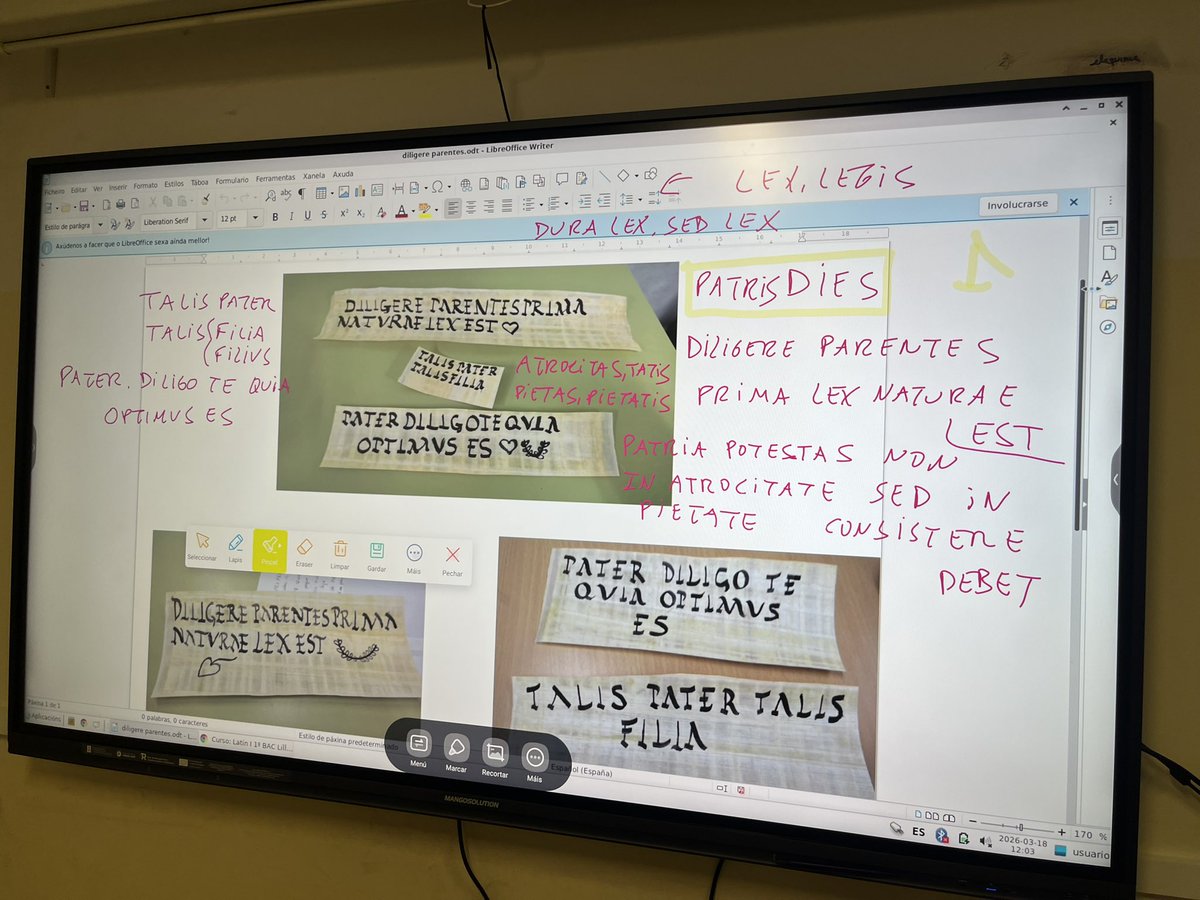 diligere parentes.odt - LibreOffice Writer
Ficheiro Editar Ver Inserir Formato Estilos Táboa Formulario Ferramentas Xanela Axuda
Estilo de parágra
Liberation Serif
12 pt
LEX, LEGIS
Involucrarse
Axúdenos a facer que o LibreOffice sexa aínda mellor!
DURA LEX, SED LEX
PATRIS DIES
1
TALIS PATER
TALIS (FILIA
(FILIUS
PATER. DILIGO TE QUIA
OPTIMUS ES
DILIGERE PARENTES PRIMA
NATVRAE LEX EST
TALIS PATER
TALIS FILIA
PATER DILIGO TE QVIA
OPTIMVS ES
ATROCITAS, TATIS
PIETAS, PIETATIS
DILIGERE PARENTES
PRIMA LEX NATURAE
EST
PATRIA POTESTAS NON
IN ATROCITATE SED IN
PIETATE CONSISTERE
DEBET
Seleccionar Lapis Pincel Eraser Limpar Gardar Máis Pechar
DILIGERE PARENTES PRIMA
NATVRAE LEX EST
PATER DILIGO TE
QVIA OPTIMVS
ES
TALIS PATER TALIS
FILIA
Páxina 1 de 1
0 palabras, 0 caracteres
Estilo de páxina predeterminado
Español (España)
170 %
Menú Marcar Recortar Máis
Aplicacións
diligere parentes.odt - L...
Curso: Latín I 1º BAC Lill...
ES
2026-03-18
12:03
usuario
MANGOSOLUTION